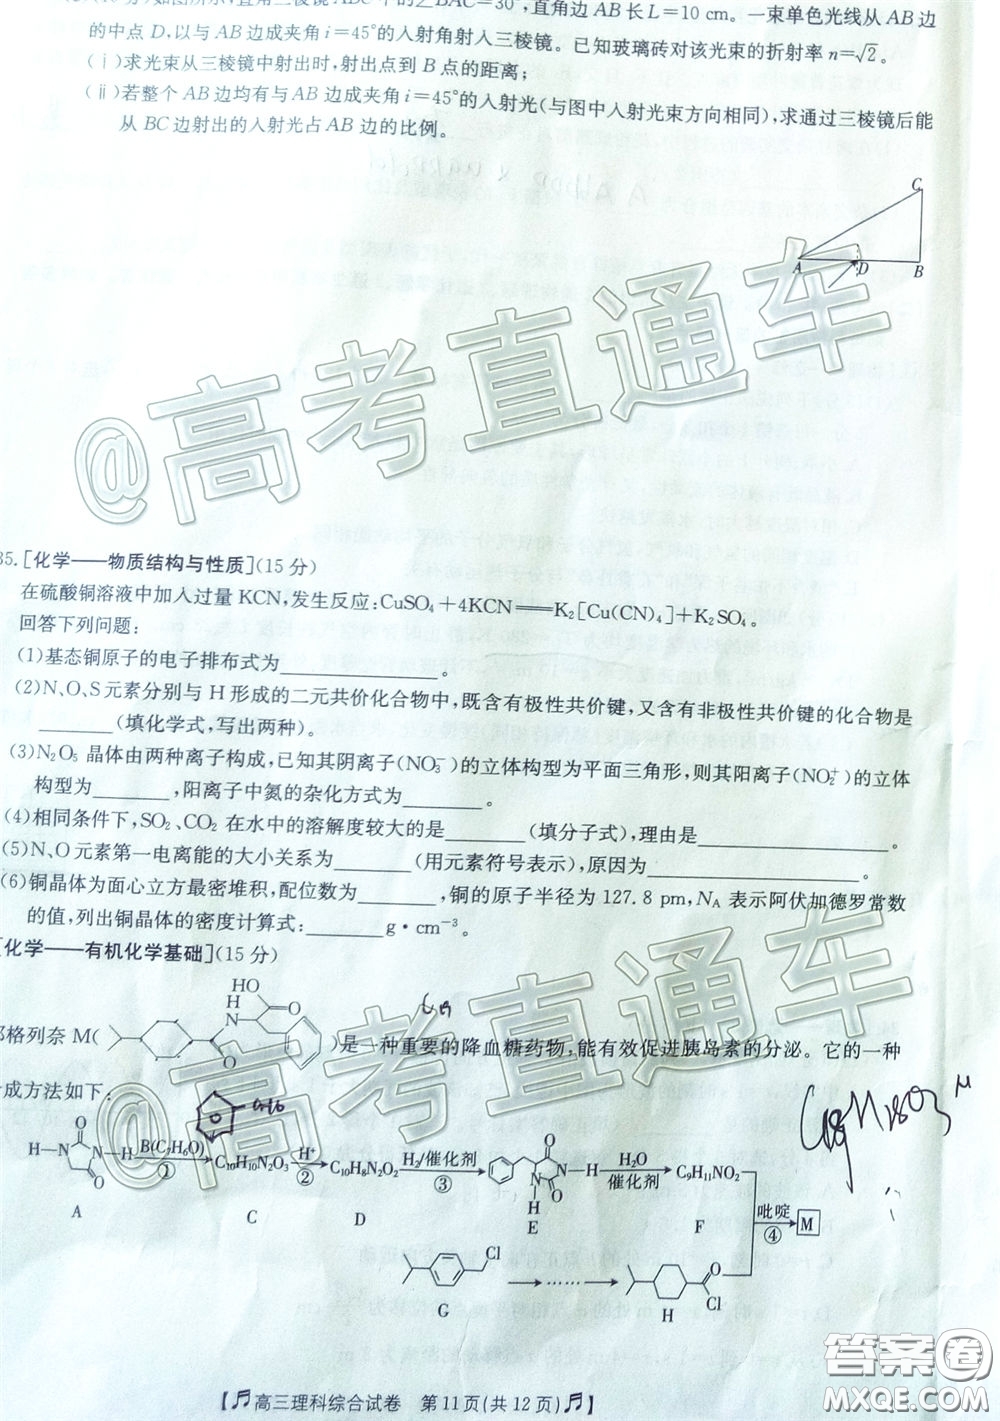 (10分)如图所示,直角三棱镜ABC中的∠BAC=30°,直角边AB长L=10 cm。一束单色光线从AB边
的中点D,以与AB边成夹角i=45°的入射角射入三棱镜。已知玻璃砖对该光束的折射率n=√2。
(ⅰ)求光束从三棱镜中射出时,射出点到B点的距离;
(ⅱ)若整个AB边均有与AB边成夹角i=45°的入射光(与图中入射光束方向相同),求通过三棱镜后能
从BC边射出的入射光占AB边的比例。
C
A D B
@高考直通车
35.[化学——物质结构与性质](15分)
在硫酸铜溶液中加入过量KCN,发生反应:CuSO₄+4KCN══K₂[Cu(CN)₄]+K₂SO₄。
回答下列问题:
(1)基态铜原子的电子排布式为________。
(2)N、O、S元素分别与H形成的二元共价化合物中,既含有极性共价键,又含有非极性共价键的化合物是
________(填化学式,写出两种)。
(3)N₂O₅晶体由两种离子构成,已知其阴离子(NO₃⁻)的立体构型为平面三角形,则其阳离子(NO₂⁺)的立体
构型为________,阳离子中氮的杂化方式为________。
(4)相同条件下,SO₂、CO₂在水中的溶解度较大的是________(填分子式),理由是________。
(5)N、O元素第一电离能的大小关系为________(用元素符号表示),原因为________。
(6)铜晶体为面心立方最密堆积,配位数为________,铜的原子半径为127.8 pm,N_A表示阿伏加德罗常数
的值,列出铜晶体的密度计算式:________g·cm⁻³。
[化学——有机化学基础](15分)
HO
H
N O
O
格列奈M( )是一种重要的降血糖药物,能有效促进胰岛素的分泌。它的一种
成方法如下:
@高考直通车
H—N N—H O O B(C₇H₆O) ① C₁₀H₁₀N₂O₃ H⁺ ② C₁₀H₈N₂O₂ H₂/催化剂 ③ O N—H N O H H₂O 催化剂 C₉H₁₁NO₂
A C D E F 吡啶 ④ M
Cl
G …… O Cl H
【高三理科综合试卷 第11页(共12页)】
答案圈
MXQE.COM